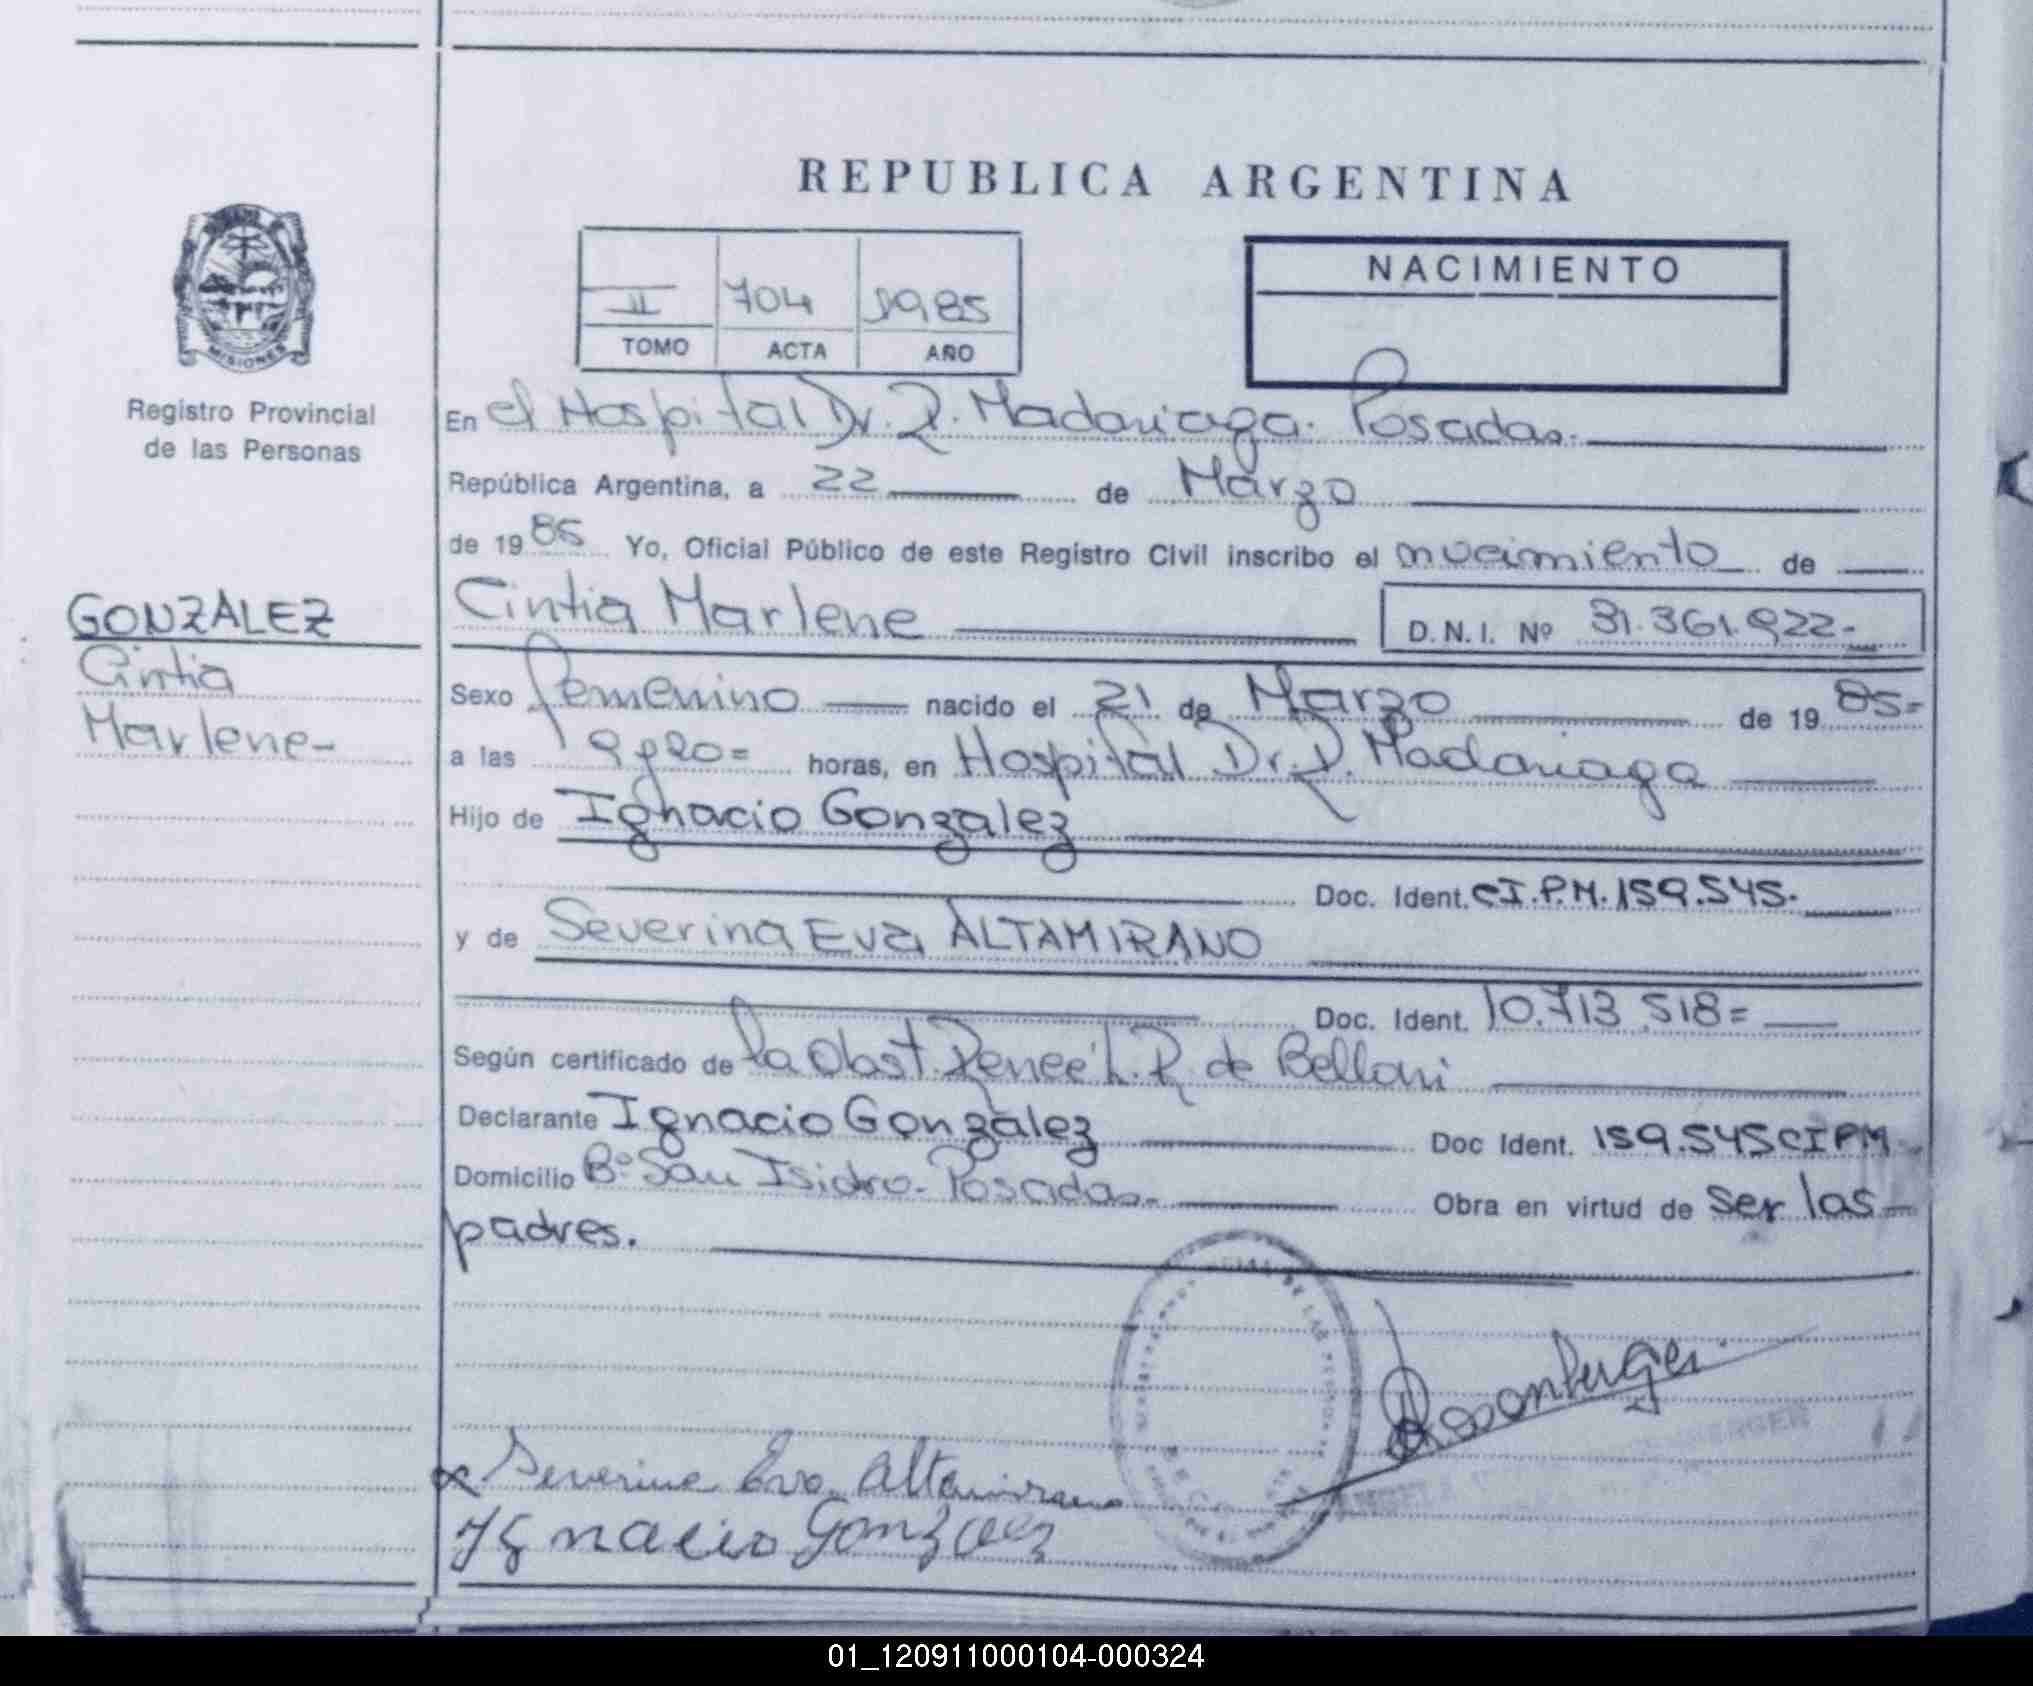 REPUBLICA ARGENTINA
NACIMIENTO
II 704 1985
TOMO ACTA AÑO
MISIONES
Registro Provincial
de las Personas
En el Hospital Dr. R. Madariaga. Posadas.
República Argentina, a 22 de Marzo
de 1985 Yo, Oficial Público de este Registro Civil inscribo el nacimiento de
GONZALEZ
Cintia
Marlene-
Cintia Marlene D.N.I. Nº 31.361.922-
Sexo femenino nacido el 21 de Marzo de 1985=
a las 9 y 20= horas, en Hospital Dr. R. Madariaga
Hijo de Ignacio Gonzalez
Doc. Ident. CI.P.M. 159.545.
y de Severina Eva ALTAMIRANO
Doc. Ident. 10.713.518=
Según certificado de la Obst. Reneé L. R. de Belloni
Declarante Ignacio Gonzalez Doc Ident. 159.545 CIPM
Domicilio Bº San Isidro- Posadas.- Obra en virtud de ser los
padres.
Rosenberger
Severina Eva Altamirano
Ignacio Gonzalez
01_120911000104-000324